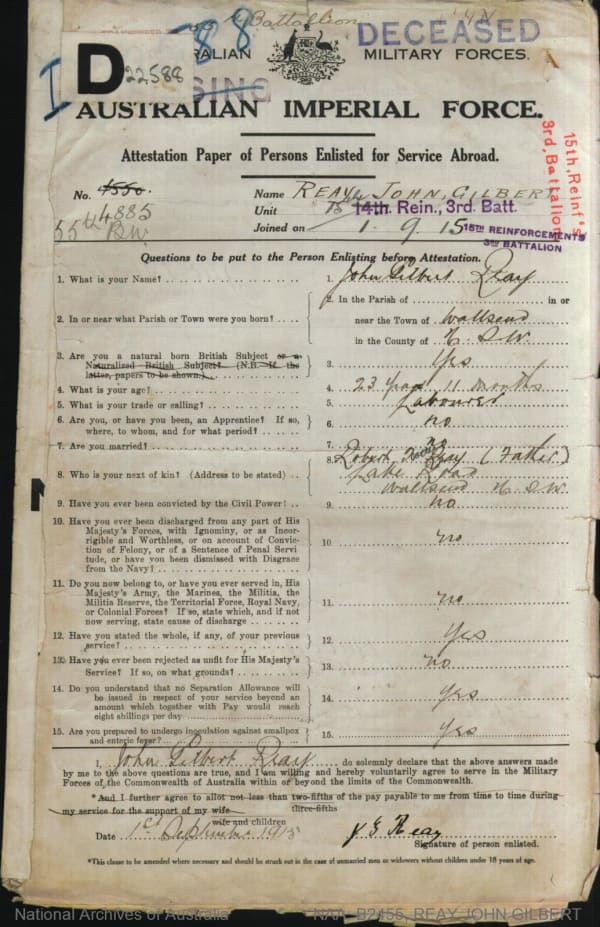 Battalion
88
DECEASED
D
22588
RALIAN MILITARY FORCES.
SING
AUSTRALIAN IMPERIAL FORCE.
Attestation Paper of Persons Enlisted for Service Abroad.
15th, Reinf's
3rd, Battalion
No. 4550. Name REAY, JOHN, GILBERT
4885 Unit 15th 14th. Rein., 3rd. Batt.
55th Bn Joined on 1. 9. 15
15TH REINFORCEMENTS
3RD BATTALION
Questions to be put to the Person Enlisting before Attestation.
1. What is your Name? 1. John Gilbert Reay
2. In or near what Parish or Town were you born? 2. In the Parish of in or
near the Town of Wallsend
in the County of N. S. W.
3. Are you a natural born British Subject or a
Naturalized British Subject? (N.B. If the
latter, papers to be shown.) 3. Yes
4. What is your age? 4. 23 years 11 months
5. What is your trade or calling? 5. Labourer
6. Are you, or have you been, an Apprentice? If so,
where, to whom, and for what period? 6. no
7. Are you married? 7. no
8. Who is your next of kin? (Address to be stated) 8. Robert, Reay (Father)
Lake Road
Wallsend N. S. W.
9. Have you ever been convicted by the Civil Power? 9. no
10. Have you ever been discharged from any part of His
Majesty's Forces, with Ignominy, or as Incor-
rigible and Worthless, or on account of Convic-
tion of Felony, or of a Sentence of Penal Servi
tude, or have you been dismissed with Disgrace
from the Navy? 10. no
11. Do you now belong to, or have you ever served in, His
Majesty's Army, the Marines, the Militia, the
Militia Reserve, the Territorial Force, Royal Navy,
or Colonial Forces? If so, state which, and if not
now serving, state cause of discharge 11. no
12. Have you stated the whole, if any, of your previous
service? 12. Yes
13. Have you ever been rejected as unfit for His Majesty's
Service? If so, on what grounds? 13. no
14. Do you understand that no Separation Allowance will
be issued in respect of your service beyond an
amount which together with Pay would reach
eight shillings per day 14. Yes
15. Are you prepared to undergo inoculation against smallpox
and enteric fever? 15. Yes
I, John Gilbert Reay do solemnly declare that the above answers made
by me to the above questions are true, and I am willing and hereby voluntarily agree to serve in the Military
Forces of the Commonwealth of Australia within or beyond the limits of the Commonwealth.
*And I further agree to allot not less than two-fifths of the pay payable to me from time to time during
three-fifths
my service for the support of my wife
wife and children
Date 1st September 1915 J G Reay
Signature of person enlisted.
*This clause to be amended where necessary and should be struck out in the case of unmarried men or widowers without children under 18 years of age.
National Archives of Australia NAA: B2455, REAY JOHN GILBERT